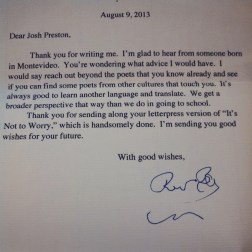 August 9, 2013
Dear Josh Preston,
Thank you for writing me. I'm glad to hear from someone born
in Montevideo. You're wondering what advice I would have. I
would say reach out beyond the poets that you know already and see
if you can find some poets from other cultures that touch you. It's
always good to learn another language and translate. We get a
broader perspective that way than we do in going to school.
Thank you for sending along your letterpress version of "It's
Not to Worry," which is handsomely done. I'm sending you good
wishes for your future.
With good wishes,